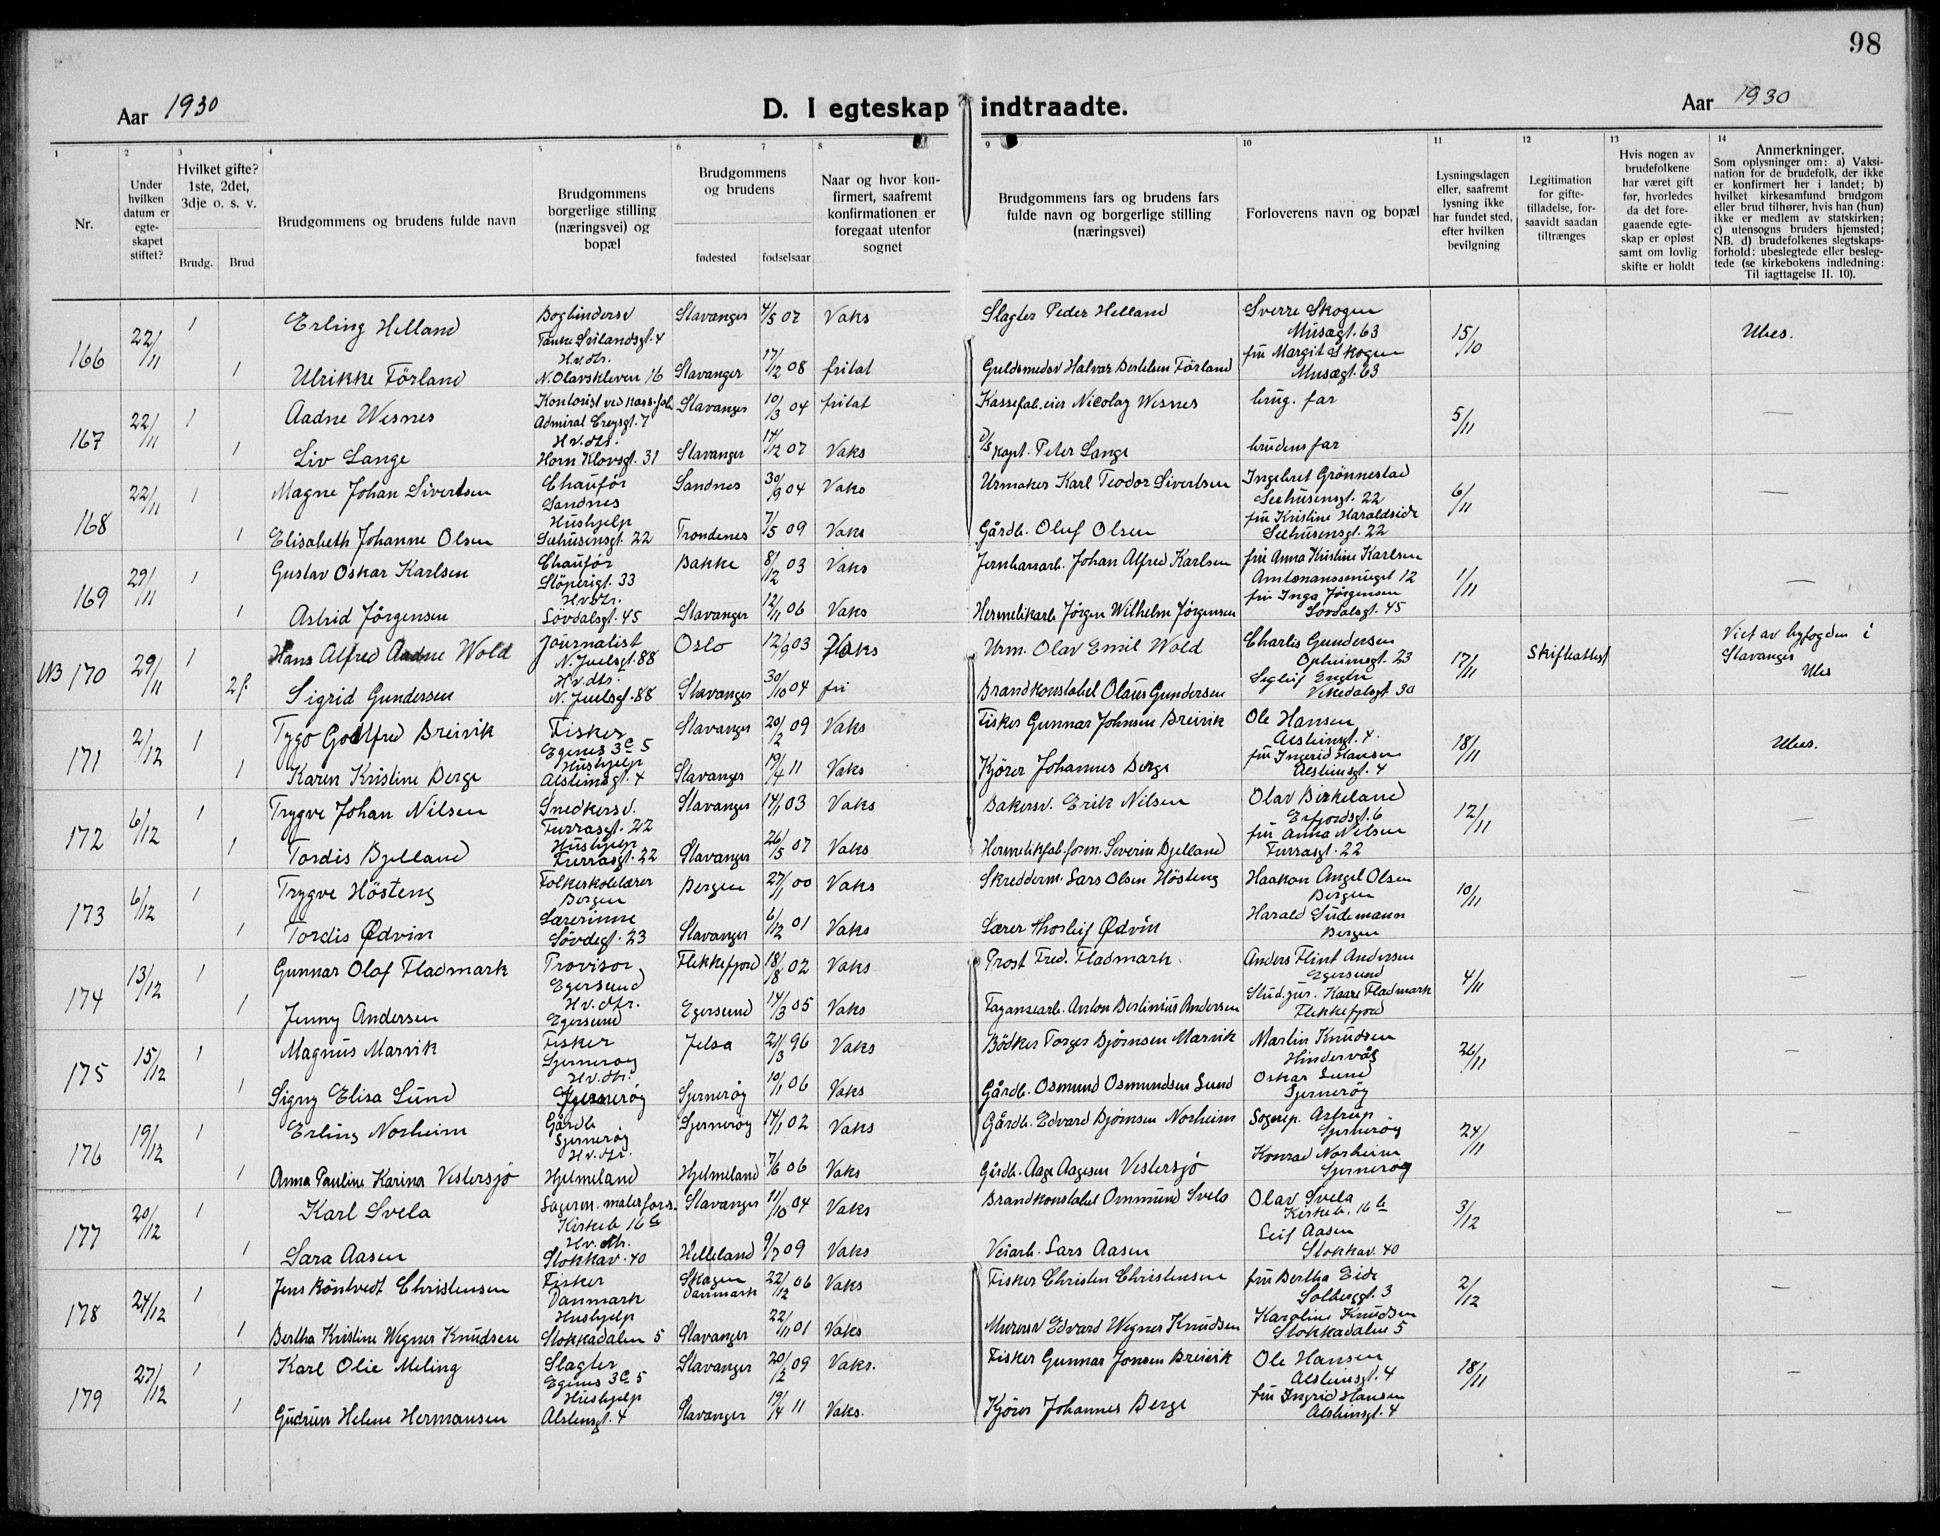 98
Aar 1930
D. I egteskap indtraadte.
Aar 1930
1 2 3 4 5 6 7 8 9 10 11 12 13 14
Nr.
Under hvilken datum er egte-skapet stiftet?
Hvilket gifte? 1ste, 2det, 3dje o. s. v.
Brudg. Brud
Brudgommens og brudens fulde navn
Brudgommens borgerlige stilling (næringsvei) og bopæl
Brudgommens og brudens
fødested fødselsaar
Naar og hvor kon-firmert, saafremt konfirmationen er foregaat utenfor sognet
Brudgommens fars og brudens fars fulde navn og borgerlige stilling (næringsvei)
Forloverens navn og bopæl
Lysningsdagen eller, saafremt lysning ikke har fundet sted, efter hvilken bevilgning
Legitimation for gifte-tilladelse, for-saavidt saadan tiltrænges
Hvis nogen av brudefolkene har været gift før, hvorledes da det fore-gaaende egte-skap er opløst samt om lovlig skifte er holdt
Anmerkninger.
Som oplysninger om: a) Vaksi-nation for de brudefolk, der ikke er konfirmert her i landet; b) hvilket kirkesamfund brudgom eller brud tilhører, hvis han (hun) ikke er medlem av statskirken; c) utensogns bruders hjemsted; NB. d) brudefolkenes slegtskaps-forhold: ubeslegtede eller besleg-tede (se kirkebokens indledning: Til iagttagelse II. 10).
166 22/11 1 Erling Helland Bogbindersv Stavanger 4/5 07 Vaks Slagter Peder Helland Sverre Skogen 15/10 Ubes.
Tanke Svilandsgt. 4 Musægt. 63
H.v.dtr. fru Margit Skogen
1 Ulrikke Förland N. Olavskleven 16 Stavanger 17/12 08 fritat Guldsmedsv Halvar Bertelsen Förland Musægt. 63
167 22/11 1 Aadne Wesnes Kontorist ved kass.fab. Stavanger 10/3 04 fritat Kassefab.eier Nicolay Wesnes brug. far 5/11 —
Admiral Creysgt. 7
H v. dtr.
1 Liv Lange Horn Klovsgt. 31 Stavanger 14/12 07 Vaks D/s kapt. Peter Lange brudens far
168 22/11 1 Magne Johan Sivertsen Chaufør Sandnes 30/9 04 Vaks Urmaker Karl Teodor Sivertsen Ingebret Grönnestad 6/11 —
Sandnes Seehusensgt. 22
Hushjelp fru Kristine Haraldseide
1 Elisabeth Johanne Olsen Seehusensgt. 22 Trondenes 7/5 09 Vaks Gårdb. Oluf Olsen Seehusensgt. 22
169 29/11 1 Gustav Oskar Karlsen Chaufør Bakke 8/12 03 Vaks Jernbanearb. Johan Alfred Karlsen fru Anna Kristine Karlsen 1/11 —
Stöperigt. 33 Amtmanssmuget 12
H.v.dtr. fru Inga Jørgensen
1 Astrid Jørgensen Lövdalsgt. 45 Stavanger 12/11 06 Vaks Hermetikarb Jørgen Wilhelm Jørgensen Lövdalsgt. 45
NB 170 29/11 1 Hans Alfred Aadne Wold Journalist Oslo 12/9 03 Vaks Urm. Olav Emil Wold Charles Gundersen 17/11 Skifteattest Viet av byfogden i
N. Juelsgt. 88 Opheimsgt. 23 Stavanger
H.v.dtr. Ubes
2 f. Sigrid Gundersen N. Juelsgt. 88 Stavanger 30/10 04 fri Brandkonstabel Olaus Gundersen Vikedalsgt 30
171 2/12 1 Tygo Godtfred Breivik Fisker Stavanger 20/2 09 Vaks Fisker Gunnar Johnsen Breivik Ole Hansen 18/11 Ubes.
Egenes 3c 5 Alsteinsgt. 4
Hushjelp fru Ingerid Hansen
1 Karen Kristine Berge Alsteinsgt. 4 Stavanger 19/4 11 Vaks Kjörer Johannes Berge Alsteinsgt. 4
172 6/12 1 Trygve Johan Nilsen Snedkersv. Stavanger 14/1 03 Vaks Bakersv. Erik Nilsen Olav Birkeland 12/11 —
Furrasgt. 22 Erfjordsgt. 6
Hushjelp fru Anna Nilsen
1 Tordis Bjelland Furrasgt. 22 Stavanger 26/5 07 Vaks Hermetikfab.form. Severin Bjelland Furrasgt. 22
173 6/12 1 Trygve Hösteng Folkeskolelærer Bergen 27/11 00 Vaks Skredderm. Lars Olsen Hösteng Haakon Angel Olsen 10/11 —
Bergen Bergen
Lærerinne Harald Südemann
1 Tordis Ødvin Lövdegt. 23 Stavanger 6/12 01 Vaks Lærer Thorleif Ødvin Bergen
174 13/12 1 Gunnar Olaf Fladmark Provisor Flekkefjord 18/8 02 Vaks Prost Fred. Fladmark. Anders Flint Andersen 4/11 —
Egersund Egersund
H v. dtr. Stud. jur. Kaare Fladmark
1 Jenny Andersen Egersund Egersund 14/3 05 Vaks Fayansearb. Anton Bertinius Andersen Flekkefjord
175 15/12 1 Magnus Marvik Fisker Jelsa 21/3 96 Vaks Bödker Torger Bjørnsen Marvik Martin Knudsen 26/11 —
Sjernerøy Hindervåg
H v. dtr. Oskar Lund
1 Signy Elisa Lund Sjernerøy Sjernerøy 10/1 06 Vaks Gårdb. Osmund Osmundsen Lund Sjernerøy
176 19/12 1 Erling Norheim Gårdb Sjernerøy 14/1 02 Vaks Gårdb. Edvard Bjørnsen Norheim Sogrep. Astrup 24/11 —
Sjernerøy Sjernerøy
H v. dtr. Konrad Norheim
1 Anna Pauline Karina Vestersjø Hjelmeland Hjelmeland 7/6 06 Vaks Gårdb. Aage Aagesen Vestersjø Sjernerøy
177 20/12 1 Karl Svela Lagerm. malerforr. Stavanger 11/10 04 Vaks Brandkonstabel Ommund Svela Olav Svela 3/12 —
Kirkeb 16 b Kirkeb. 16 b
H v. dtr. Leif Aasen
1 Sara Aasen Stokkav. 40 Helleland 9/7 09 Vaks Veiarb. Lars Aasen Stokkav. 40
178 24/12 1 Jens Röntvedt Christensen Fisker Skagen 22/12 06 Vaks Fisker Christen Christensen fru Bertha Eide 2/12 —
Danmark Danmark Solberggt. 3
Hushjelp Karoline Knudsen
1 Bertha Kristine Wegner Knudsen Stokkadalen 5 Stavanger 22/11 01 Vaks Murersv Edvard Wegner Knudsen Stokkadalen 5
179 27/12 1 Karl Olie Meling Slagter Stavanger 20/2 09 Vaks. Fisker Gunnar Jonsen Breivik Ole Hansen 18/11 —
Egenes 3c 5 Alsteinsgt. 4
Hushjelp fru Ingrid Hansen
1 Gudrun Helene Hermansen Alstensgt. 4 Stavanger 19/4 11 Vaks. Kjörer Johannes Berge Alsteinsgt. 4